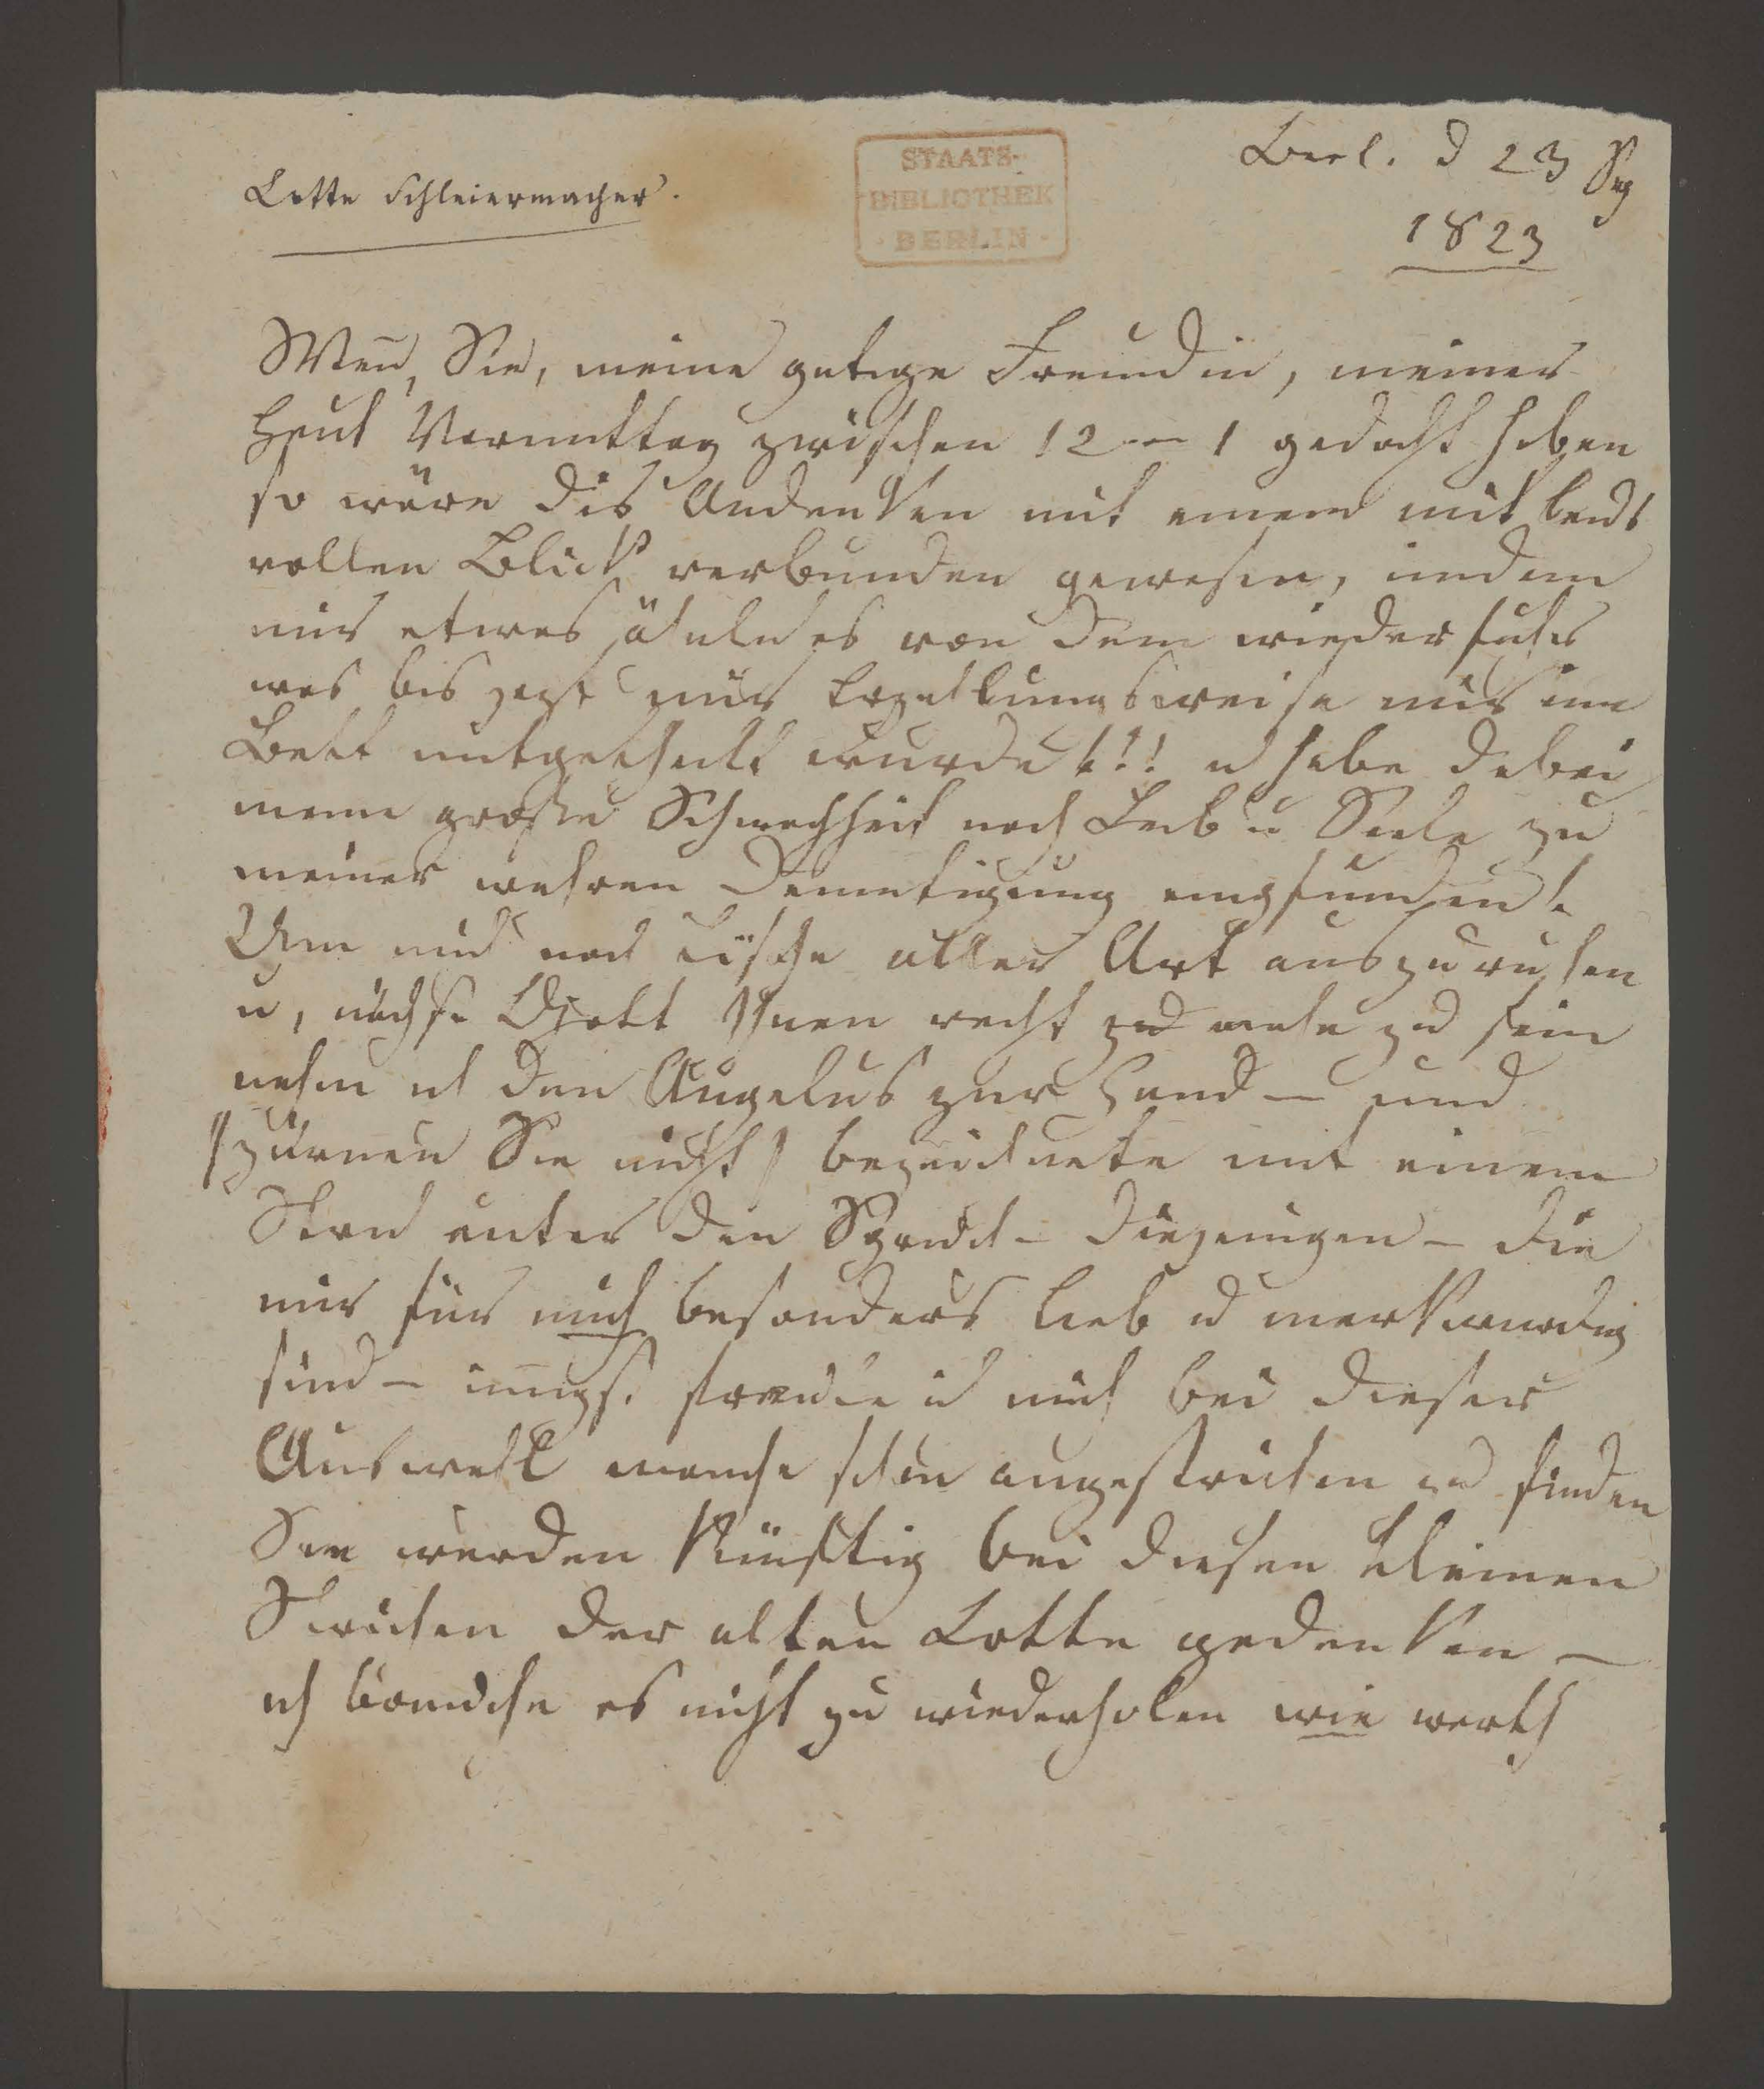 Berl. d 23 Sep
1823
Lotte Schleiermacher.
STAATS-
BIBLIOTHEK
· BERLIN ·
Wen̄ Sie, meine gutige Freundin, meiner
heut Vormittag zwischen 12 – 1 gedacht haben
so wäre dis Andenken mit einem mit leids
vollen Blick verbunden gewesen, indem
mir etwas änliches von dem wiederfuhr
was bis jezt nur Erzellungsweise mir im
Bett mitgetheilt wurde!!! u habe dabei
meine große Schwachheit nach Leib u Seele zu
meiner wahren Demutigung empfunden!
Um mich nach Tische aller Art auszuruhen
u, nächst Gott Ihnen recht zu nahe zu sein
nahm ich den Angelus zur Hand – und
/zürnen Sie nicht/ bezeichnete mit einem
Strich unter den Sprüch – diejenigen – die
mir für mich besonders lieb u merkwurdig
sind – innigst freute ich mich bei dieser
Auswahl manche schon angestrichen zu finden
Sie werden künftig bei diesen kleinen
Strichen der alten Lotte gedenken –
ich brauche es nicht zu wiederholen wie werth